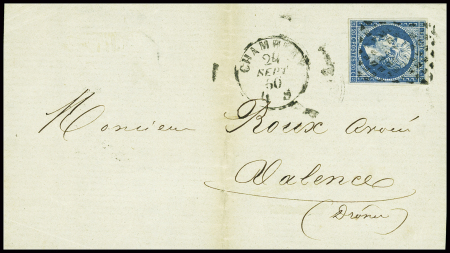 CHAMBERY
24
SEPT
60
Monsieur Roux avoué
Valence
(Drôme)